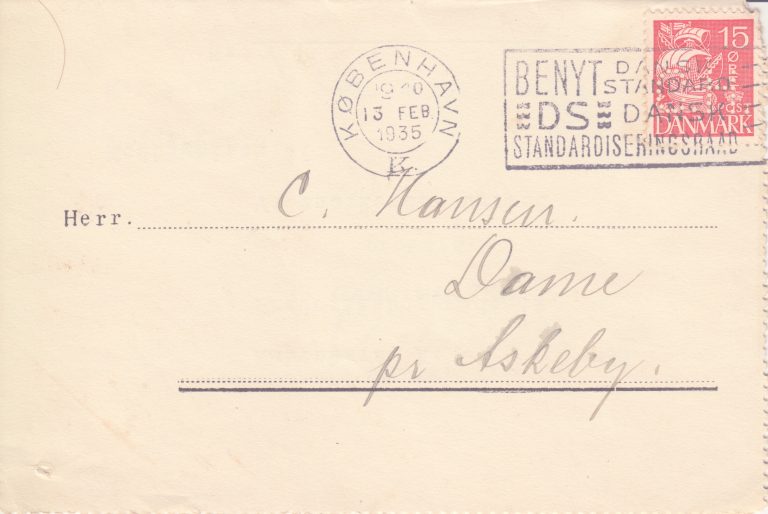 KØBENHAVN
13 FEB.
1935
K.
BENYT DANSK STANDARD
DS DANSK
STANDARDISERINGSRAAD
15
ØRE
DANMARK
Herr. C. Hansen.
Dame
pr Askeby.